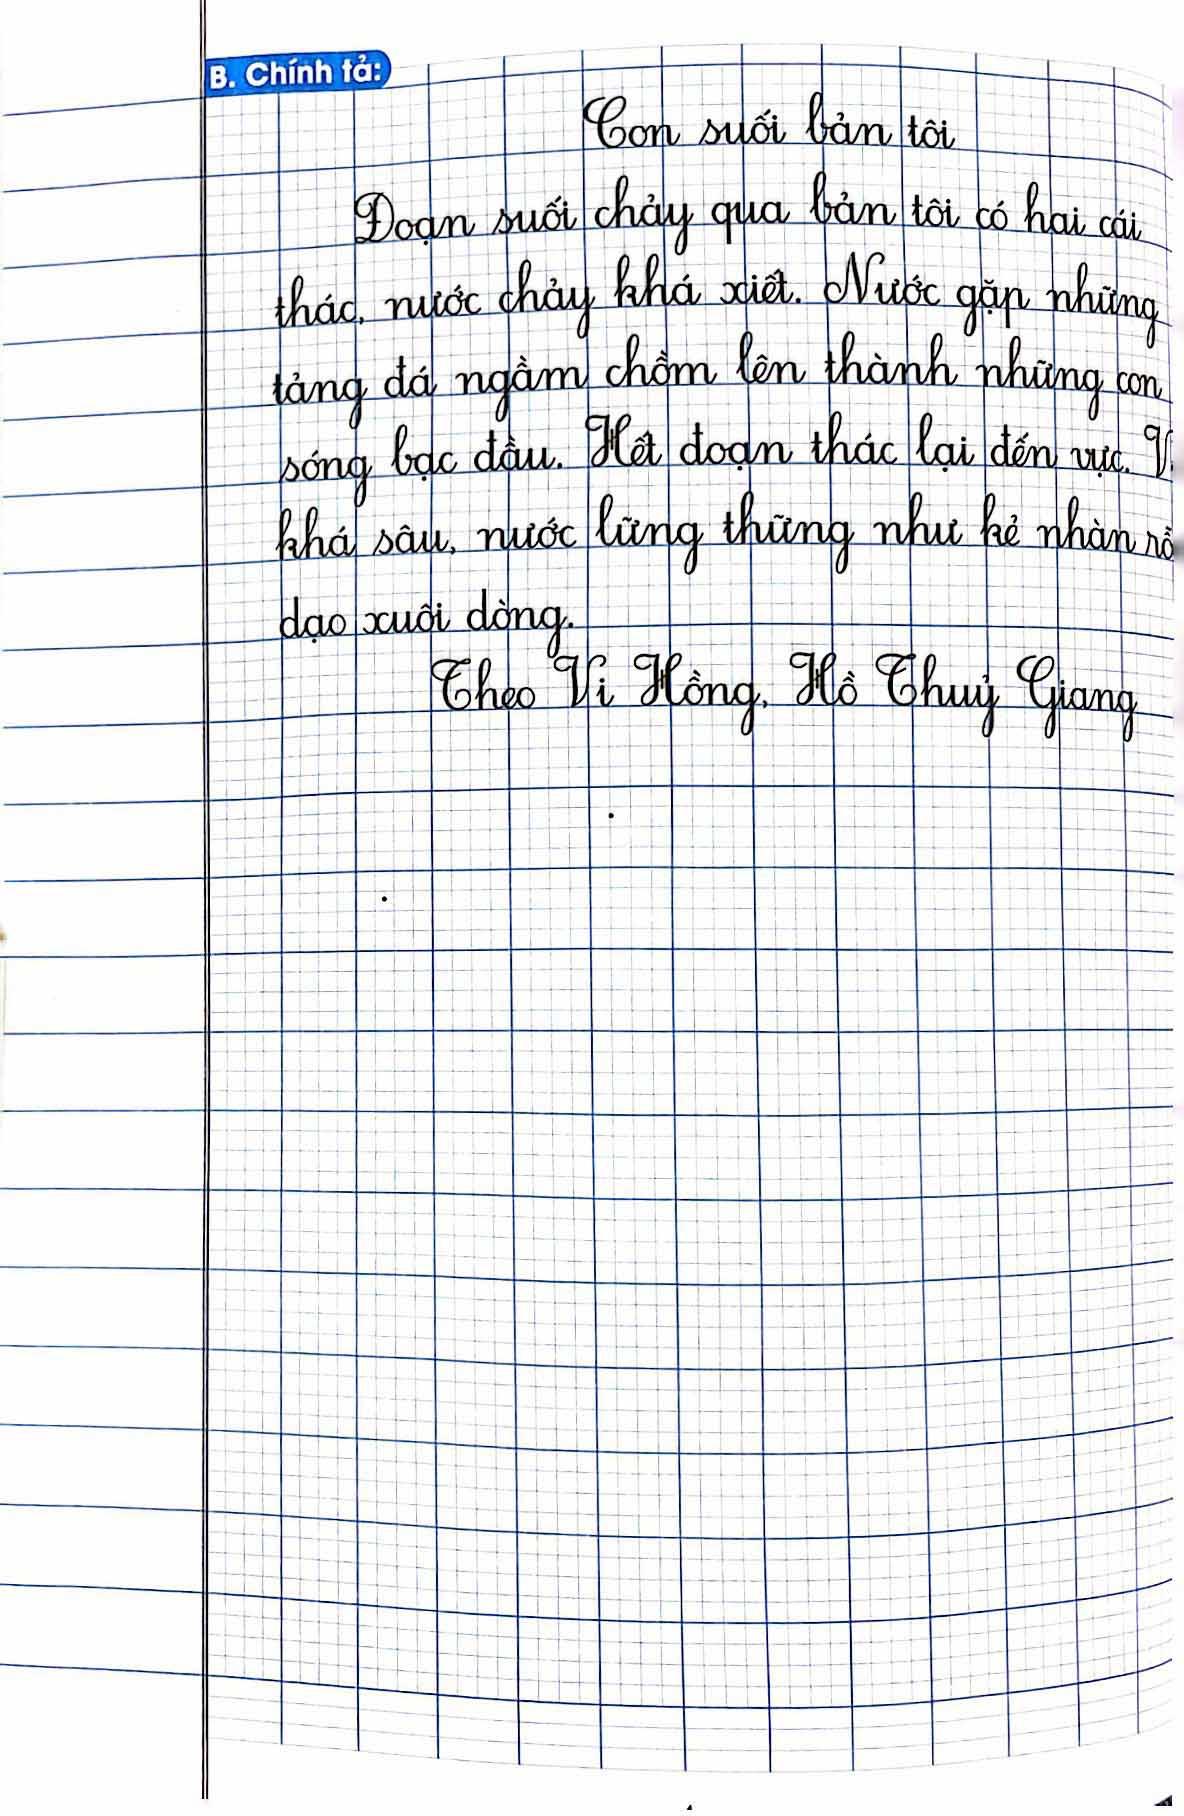 B. Chính tả:
Con suối bản tôi
Đoạn suối chảy qua bản tôi có hai cái
thác, nước chảy khá xiết. Nước gặp những
tảng đá ngầm chồm lên thành những con
sóng bạc đầu. Hết đoạn thác lại đến vực.
khá sâu, nước lững thững như kẻ nhàn
dạo xuôi dòng.
Theo Vi Hồng, Hồ Thuỷ Giang